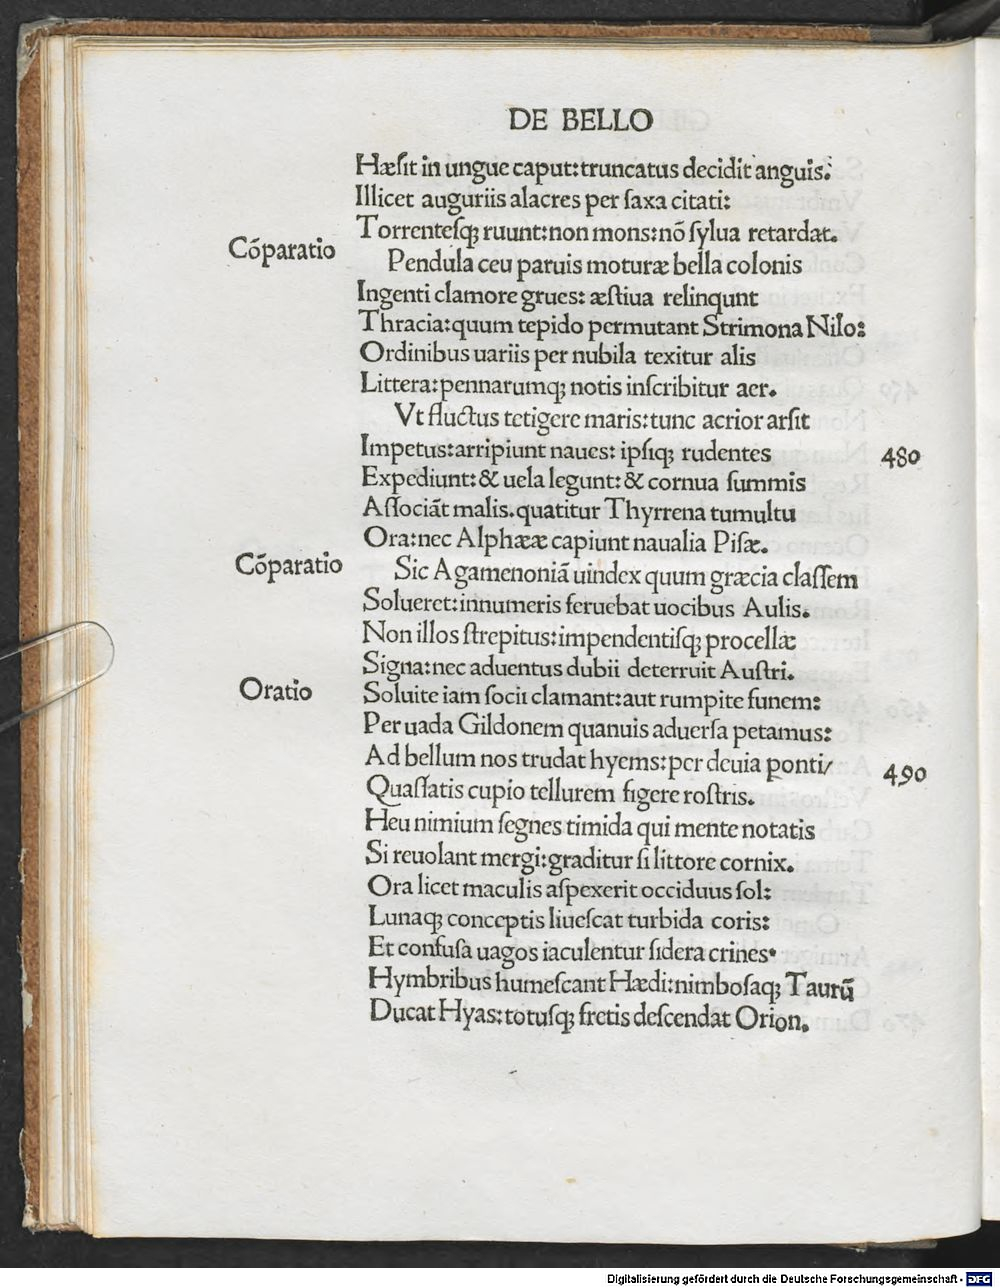 DE BELLO
Hæsit in ungue caput:truncatus decidit anguis.
Illicet auguriis alacres per ſaxa citati:
Torrenteſqꝫ ruunt:non mons:nō ſylua retardat.
Cōparatio
Pendula ceu paruis moturæ bella colonis
Ingenti clamore grues: æſtiua relinqunt
Thracia:quum tepido permutant Strimona Nilo:
Ordinibus uariis per nubila texitur alis
Littera:pennarumqꝫ notis inſcribitur aer.
Vt fluctus tetigere maris:tunc acrior arſit
Impetus:arripiunt naues: ipſiqꝫ rudentes 480
Expediunt:& uela legunt:& cornua ſummis
Aſſociāt malis.quatitur Thyrrena tumultu
Ora:nec Alphææ capiunt naualia Piſæ.
Cōparatio
Sic Agamenoniā uindex quum græcia claſſem
Solueret:innumeris feruebat uocibus Aulis.
Non illos ſtrepitus:impendentiſqꝫ procellæ
Signa:nec aduentus dubii deterruit Auſtri.
Oratio
Soluite iam ſocii clamant:aut rumpite funem:
Per uada Gildonem quanuis aduerſa petamus:
Ad bellum nos trudat hyems:per deuia ponti/ 490
Quaſſatis cupio tellurem figere roſtris.
Heu nimium ſegnes timida qui mente notatis
Si reuolant mergi:graditur ſi littore cornix.
Ora licet maculis aſpexerit occiduus ſol:
Lunaqꝫ conceptis liueſcat turbida coris:
Et confuſa uagos iaculentur ſidera crines.
Hymbribus humeſcant Hædi:nimboſaqꝫ Taurū
Ducat Hyas:totuſqꝫ fretis deſcendat Orion.
Digitalisierung gefördert durch die Deutsche Forschungsgemeinschaft - DFG